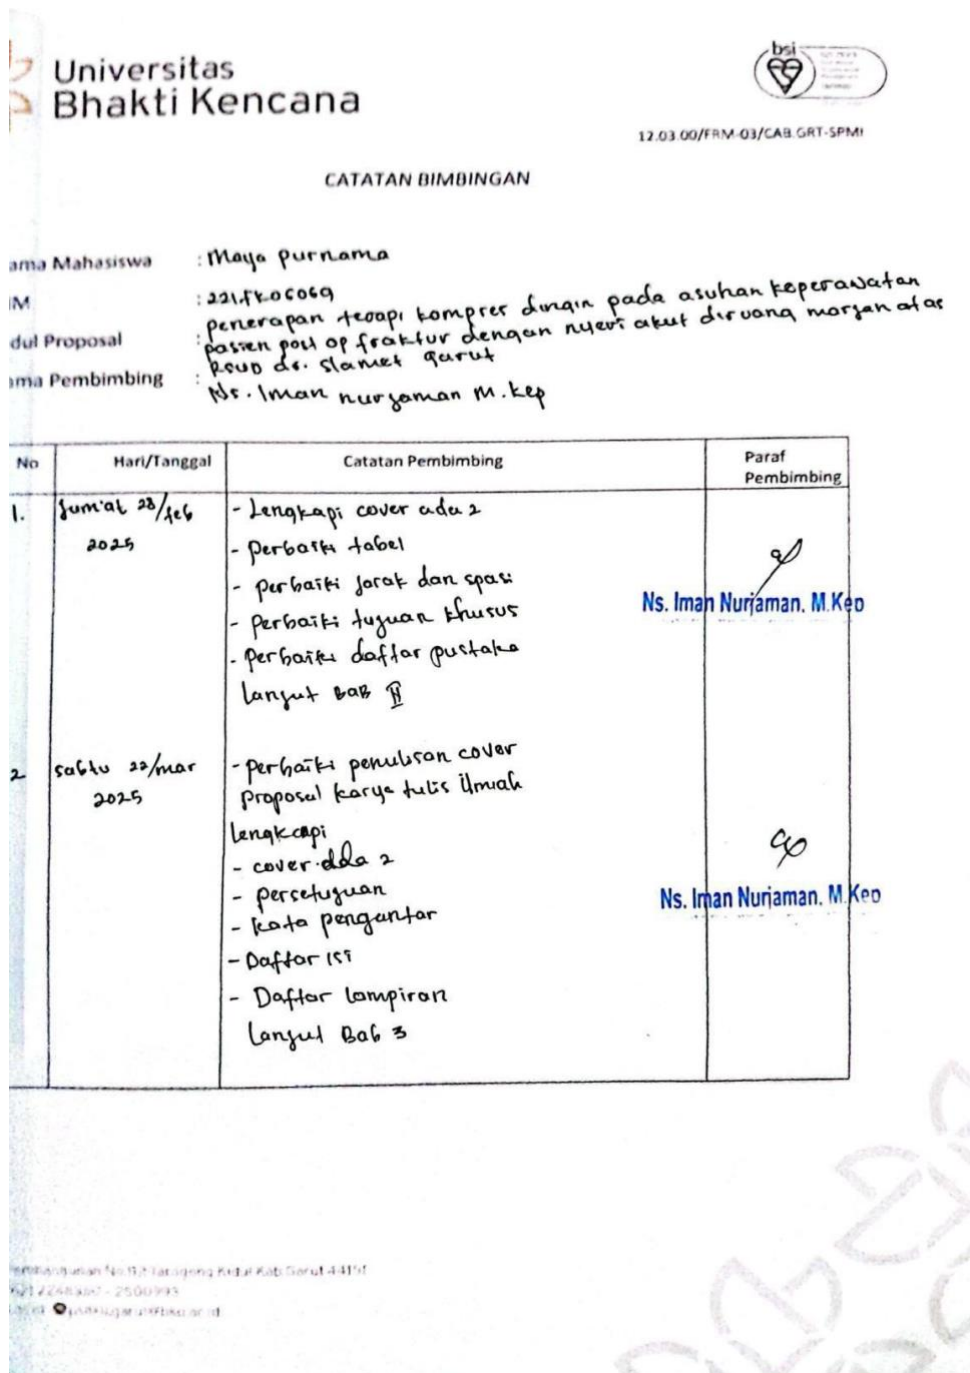 Universitas
Bhakti Kencana
bsi
12.03.00/FRM-03/CAB.GRT-SPMI
CATATAN BIMBINGAN
ama Mahasiswa : Maya purnama
IM : 221FK06069
dul Proposal : penerapan terapi kompres dingin pada asuhan keperawatan
pasien post op fraktur dengan nyeri akut diruang marjan atas
RSUD dr. slamet garut
ama Pembimbing : Ns. Iman nurjaman M.kep
No Hari/Tanggal Catatan Pembimbing Paraf
Pembimbing
1. Jum'at 28/feb 2025
- Lengkapi cover ada 2
- Perbaiki tabel
- perbaiki jarak dan spasi
- perbaiki tujuan khusus
- perbaiki daftar pustaka
lanjut BAB II
Ns. Iman Nurjaman. M.Kep
2 sabtu 22/mar 2025
- perbaiki penulisan cover
proposal karya tulis ilmiah
lengkapi
- cover ada 2
- persetujuan
- kata pengantar
- Daftar isi
- Daftar lampiran
lanjut Bab 3
Ns. Iman Nurjaman. M.Kep
Kidul Kab Garut 44151